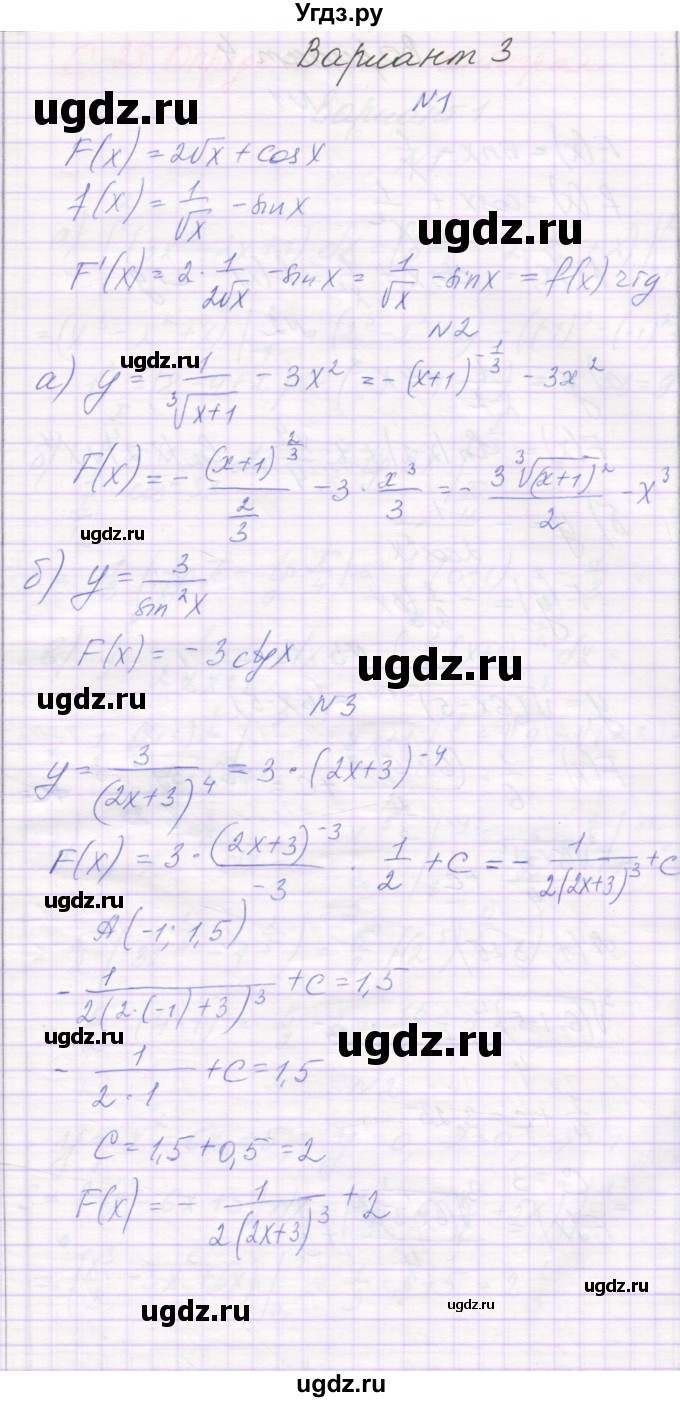 Угдз.ру
Вариант 3
ugdz.ru
N1
F(x) = 2√x + cosx
f(x) = 1/√x - sinx
ugdz.ru
F'(x) = 2 · 1/(2√x) - sinx = 1/√x - sinx = f(x) чтд
N2
ugdz.ru
а) y = - 1/∛(x+1) - 3x² = -(x+1)^(-1/3) - 3x²
F(x) = - (x+1)^(2/3)/(2/3) - 3 · x³/3 = - 3∛(x+1)²/2 - x³
ugdz.ru
б) y = 3/sin²x
F(x) = -3ctgx
ugdz.ru
ugdz.ru
N3
y = 3/(2x+3)⁴ = 3 · (2x+3)⁻⁴
F(x) = 3 · (2x+3)⁻³/-3 · 1/2 + C = - 1/(2(2x+3)³) + C
ugdz.ru
A(-1; 1,5)
- 1/(2(2·(-1)+3)³) + C = 1,5
ugdz.ru
ugdz.ru
- 1/(2·1) + C = 1,5
C = 1,5 + 0,5 = 2
F(x) = - 1/(2(2x+3)³) + 2
ugdz.ru
ugdz.ru
ugdz.ru
ugdz.ru